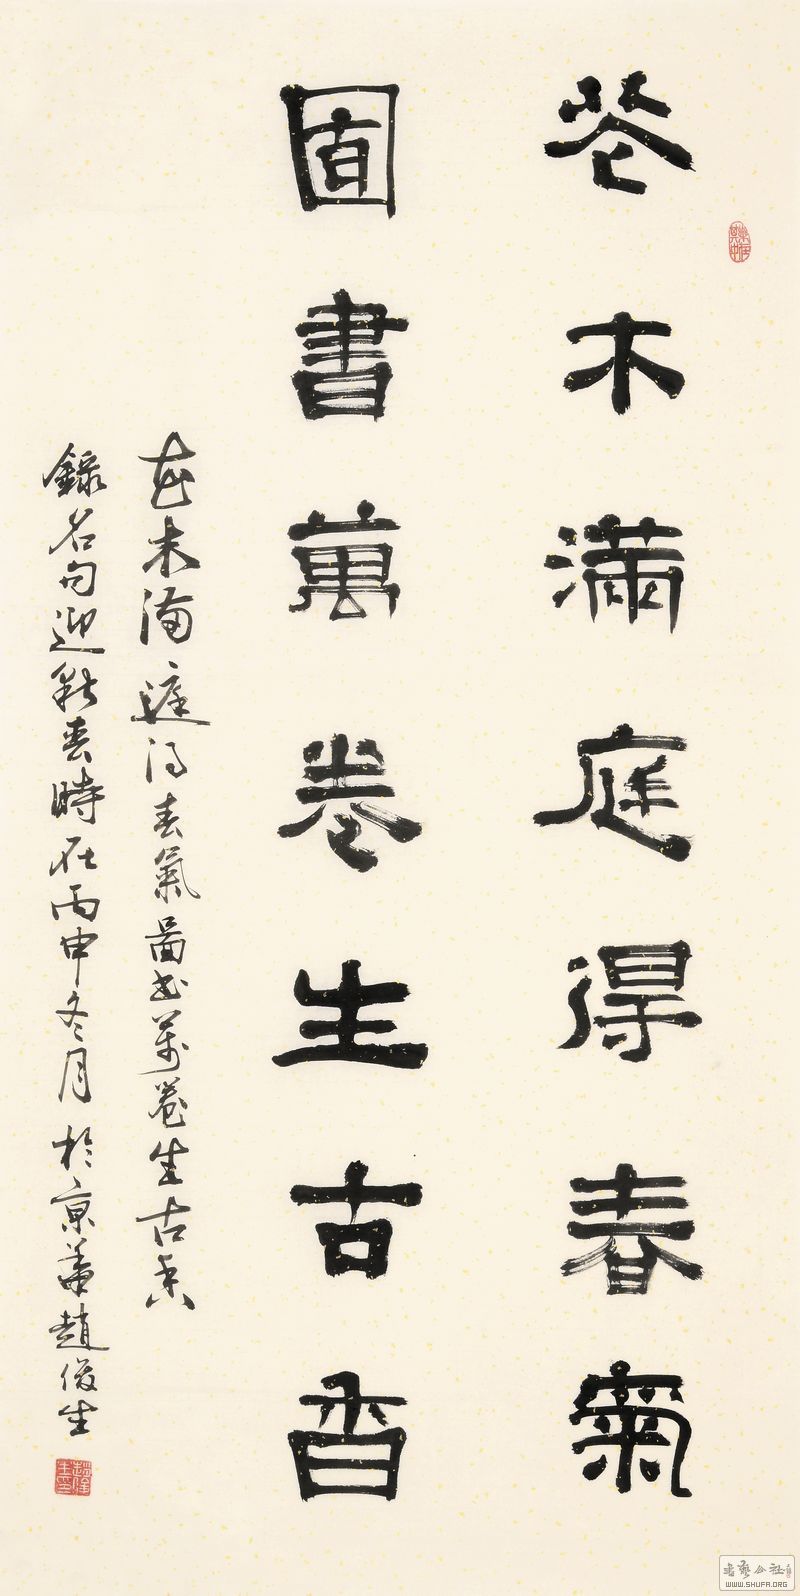 花木滿庭得春氣
圖書萬卷生古香
花木滿庭得春氣圖書萬卷生古香
錄名句迎新春時在丙申冬月於京華趙俊生
書藝公社
WWW.SHUFA.ORG